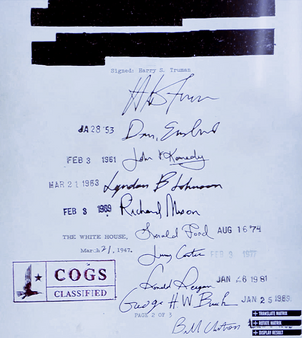 Signed: Harry S. Truman
JA 28 '53
FEB 3 1961
John F Kennedy
MAR 21 1963
Lyndon B Johnson
FEB 3 1969
Richard Nixon
THE WHITE HOUSE,
Gerald Ford AUG 16 '74
Mar. 21, 1947.
Jimmy Carter FEB 3 1977
COGS
CLASSIFIED
Ronald Reagan JAN 26 1981
George H.W. Bush JAN 25 1989
PAGE 2 OF 3
Bill Clinton
TRANSLATE MATRIX
ROTATE MATRIX
DISPLAY RESULT